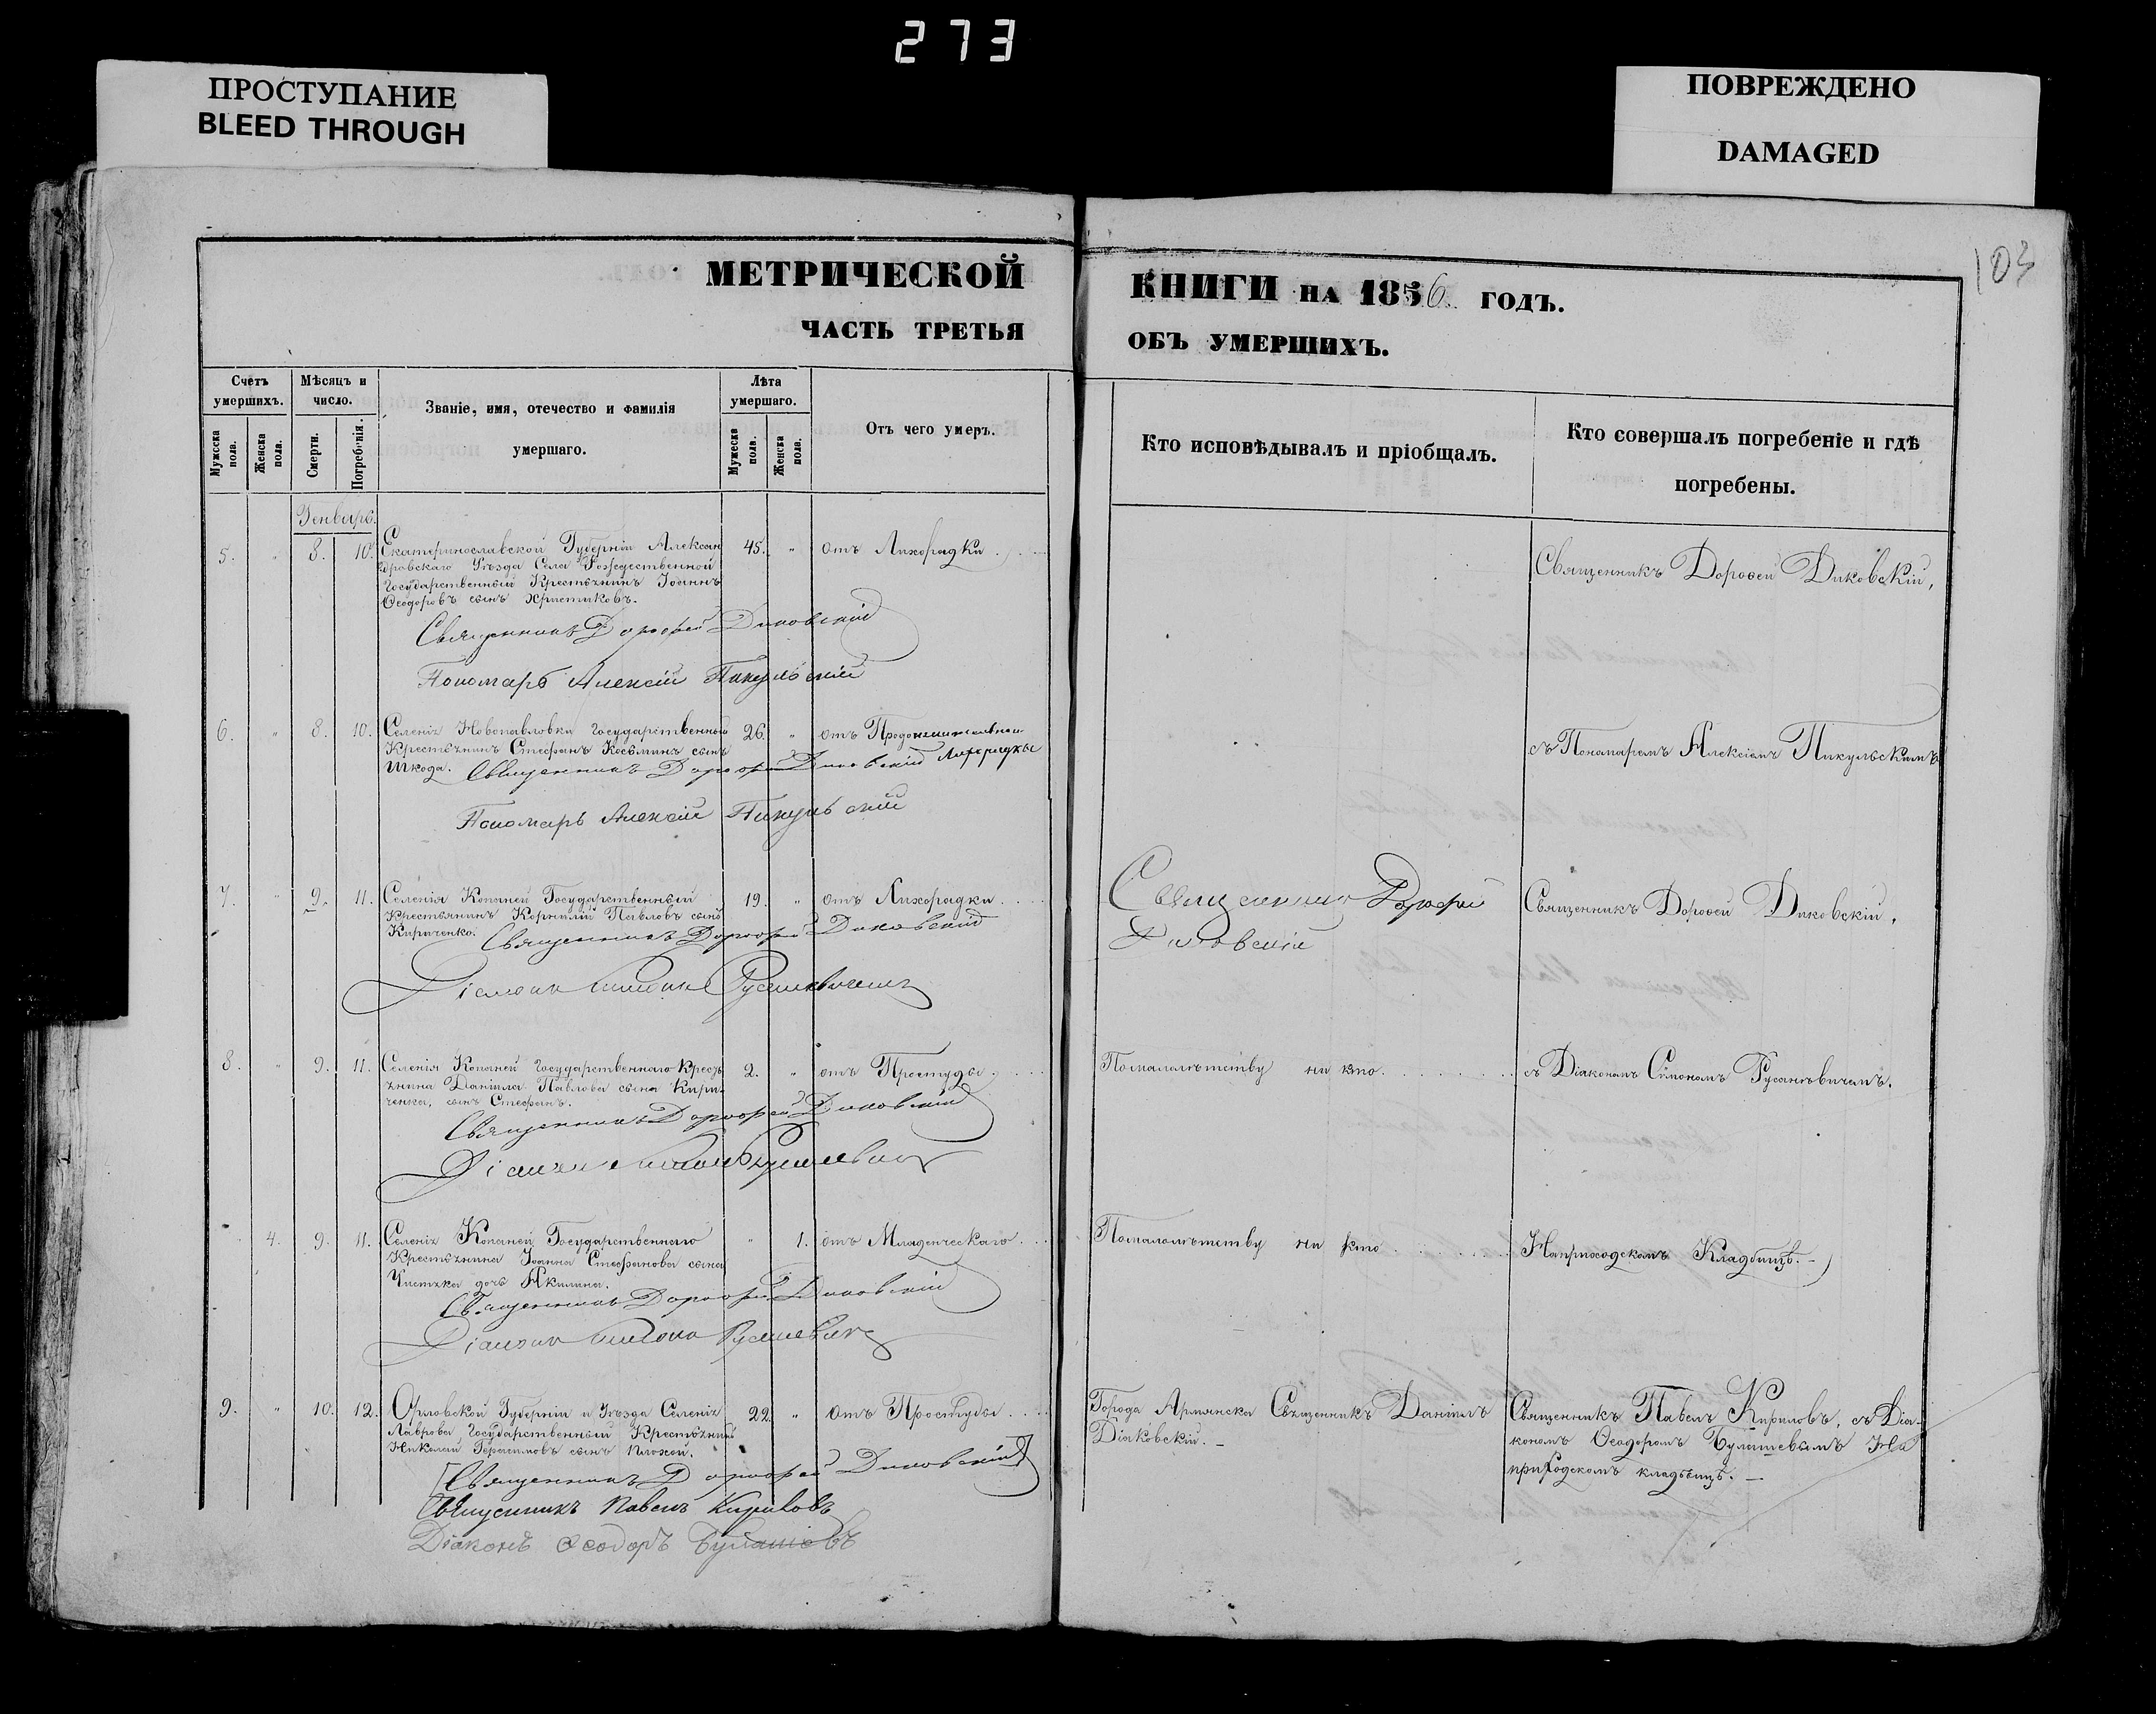 273
ПРОСТУПАНИЕ
BLEED THROUGH
ПОВРЕЖДЕНО
DAMAGED
103
МЕТРИЧЕСКОЙ
ЧАСТЬ ТРЕТЬЯ
КНИГИ НА 1856 ГОДЪ.
ОБЪ УМЕРШИХЪ.
Счетъ умершихъ.
Мужеска пола.
Женска пола.
Мѣсяцъ и число.
Смерти.
Погребенія.
Званіе, имя, отечество и фамилія
умершаго.
Лѣта умершаго.
Мужеска пола.
Женска пола.
Отъ чего умеръ.
Кто исповѣдывалъ и пріобщалъ.
Кто совершалъ погребеніе и гдѣ
погребены.
Генварь.
5. " 8. 10. Екатеринославской Губерніи Алексан 45. " отъ Лихорадки.
дровскаго Уѣзда Села Рождественной
Государственный Крестьянинъ Іоаннъ
Ѳеодоровъ сынъ Христиковъ.
Священникъ Дороѳей Диковскій
Пономарь Алексій Пикульскій
Священникъ Дороѳей Диковскій,
6. " 8. 10. Селенія Новопавловки Государственный 26. " отъ Продолжительной
Крестьянинъ Стефанъ Косьминъ сынъ Лихорадки
Шкода. Священникъ Дороѳей Диковскій
Пономарь Алексій Пикульскій
съ Понамаремъ Алексіемъ Пикульскимъ
7. " 9. 11. Селенія Копаней Государственный 19. " отъ Лихорадки.
Крестьянинъ Корнилій Павловъ сынъ
Кириченко. Священникъ Дороѳей Диковскій
Діаконъ Симеонъ Русанкевичъ
Священникъ Дороѳей
Диковскій
Священникъ Дороѳей Диковскій,
8. " 9. 11. Селенія Копаней Государственнаго Кресть 2. " отъ Простуды.
янина Даніила Павлова сына Кири-
ченка, сынъ Стефанъ.
Священникъ Дороѳей Диковскій
Діаконъ
Помалолѣтству ни кто.
съ Діакономъ Симономъ
" 4. 9. 11. Селенія Копаней Государственнаго " 1. отъ Младенческаго.
Крестьянина Іоанна Стефанова сына
Чистяка дочь Акилина.
Священникъ Дороѳей Диковскій
Діаконъ
Помалолѣтству ни кто
Наприходскомъ Кладбищѣ.
9. " 10. 12. Орловской Губерніи и Уѣзда Селенія 22. " отъ Простуды.
Лаврова Государственный Крестьянинъ
Николай Герасимовъ сынъ Плохой.
[Священникъ Дороѳей Диковскій]
Священникъ Павелъ Кириловъ
Діаконъ Ѳеодоръ
Города Армянска Священникъ Даніилъ
Діаковскій.
Священникъ Павелъ Кириловъ, съ Діа-
кономъ Ѳеодоромъ На
приходскомъ кладбищѣ.